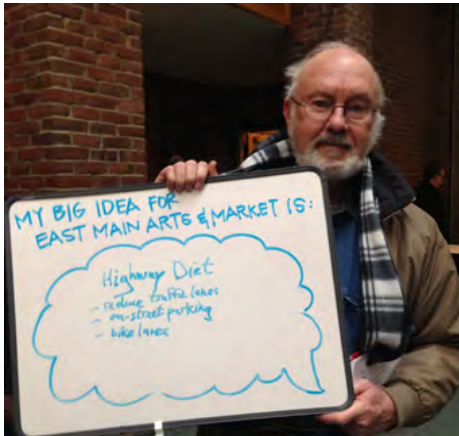 MY BIG IDEA FOR
EAST MAIN ARTS & MARKET IS:
Highway Diet
- reduce traffic lanes
- on-street parking
- bike lanes